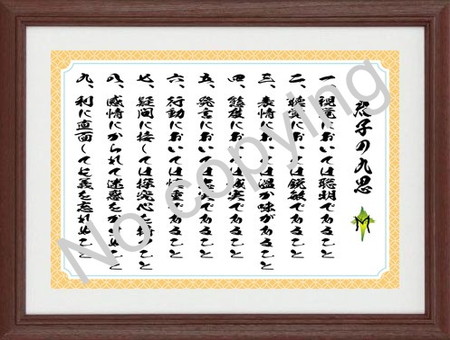 君子の九思
一、視覚においては聡明であること
二、聴覚においては鋭敏であること
三、表情においては温か味があること
四、態度においては誠実であること
五、発言においては忠実であること
六、行動においては慎重であること
七、疑問に接しては探究心を持つこと
八、感情にかられて迷惑をかけぬこと
九、利に直面しても義を忘れぬこと
M
No copying